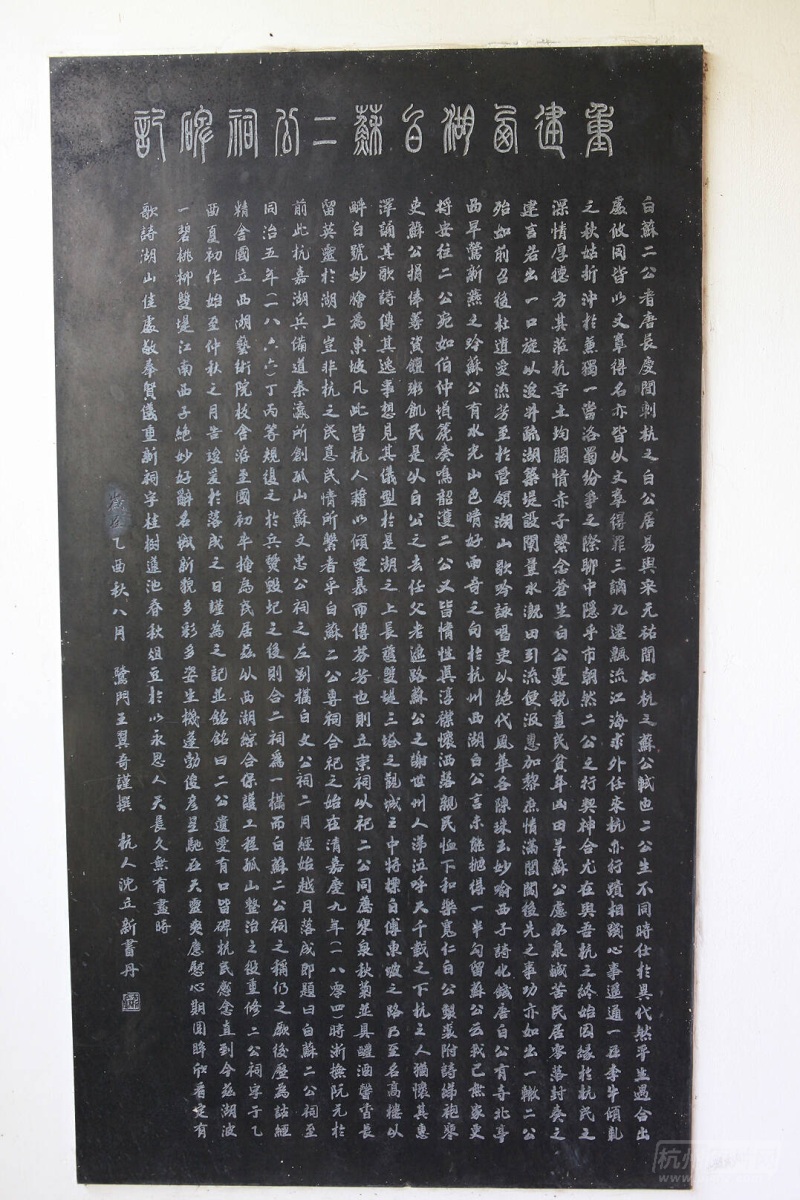 重建西湖白蘇二公祠碑記
白蘇二公者唐長慶間刺杭之白公居易與宋元祐間知杭之蘇公軾也二公生不同時仕於異代然平生遇合出
處攸同皆以文章得名亦皆以文章得罪三謫九遷飄流江海求外任來杭亦行蹟相踐心事遙通一罹李牛傾軋
之秋姑折沖於熏獨一當洛蜀紛爭之際聊中隱乎市朝然二公之行契神合尤在與吾杭之終始因緣於杭民之
深情厚德方其蒞杭守土均關情赤子繫念蒼生白公憂稅重民貧年凶田旱蘇公慮水泉鹹苦民居零落封奏之
建言若出一口旋以浚井疏湖築堤設閘量水溉田引流便汲惠加黎庶情滿閭閻後先之事功亦如出一轍二公
殆如前召後杜道愛流芳至於管領湖山歌吟詠唱更以絕代風華各陳珠玉妙喻西子詩化錢唐白公有寺北亭
西早鶯新燕之吟蘇公有水光山色晴好雨奇之句於杭州西湖白公言未能拋得一半勾留蘇公云我已無家更
將安往二公宛如伯仲塤篪奏鳴韶濩二公又皆情性真淳襟懷洒落親民恤下和樂寬仁白公製裘附詩綈袍來
吏蘇公捐俸募資饘粥飢民是以白公之去任父老遮路蘇公之謝世州人涕泣呼天千載之下杭之人猶懷其惠
澤誦其歌詩傳其逸事想見其儀型於是湖之上長蘊雙堤三塔之觀城之中特標白傅東坡之路乃至名高樓以
醉白號妙燴為東坡凡此皆杭人藉以傾愛慕而傳芬芳也則立崇祠以祀二公同薦寒泉秋菊並具醴酒饗嘗長
留英靈於湖上豈非杭之民意民情所繫者乎白蘇二公專祠合祀之始在清嘉慶九年(一八零四)時浙撫阮元於
前此杭嘉湖兵備道秦瀛所創孤山蘇文忠公祠之左別構白文公祠二月經始越月落成即題曰白蘇二公祠至
同治五年(一八六六)丁丙等規復之於兵燹毀圮之後則合二祠為一構而白蘇二公祠之稱仍之厥後歷為詁經
精舍國立西湖藝術院校舍洎至國初半掩為民居茲以西湖綜合保護工程孤山整治之役重修二公祠宇于乙
酉夏初作始至仲秋之月告竣爰於落成之日謹為之記並銘銘曰二公遺愛有口皆碑杭民感念直到今茲湖波
一碧桃柳雙堤江南西子絕妙好辭名城新貌多彩多姿生機蓬勃俊彥星馳在天靈爽應慰心期圓眸欣看定有
歌詩湖山佳處敬奉賢儀重新祠宇桂樹蓮池春秋俎豆於以永思人天長久無有盡時
歲在乙酉秋八月 鷺門王翼奇謹撰 杭人沈立新書丹